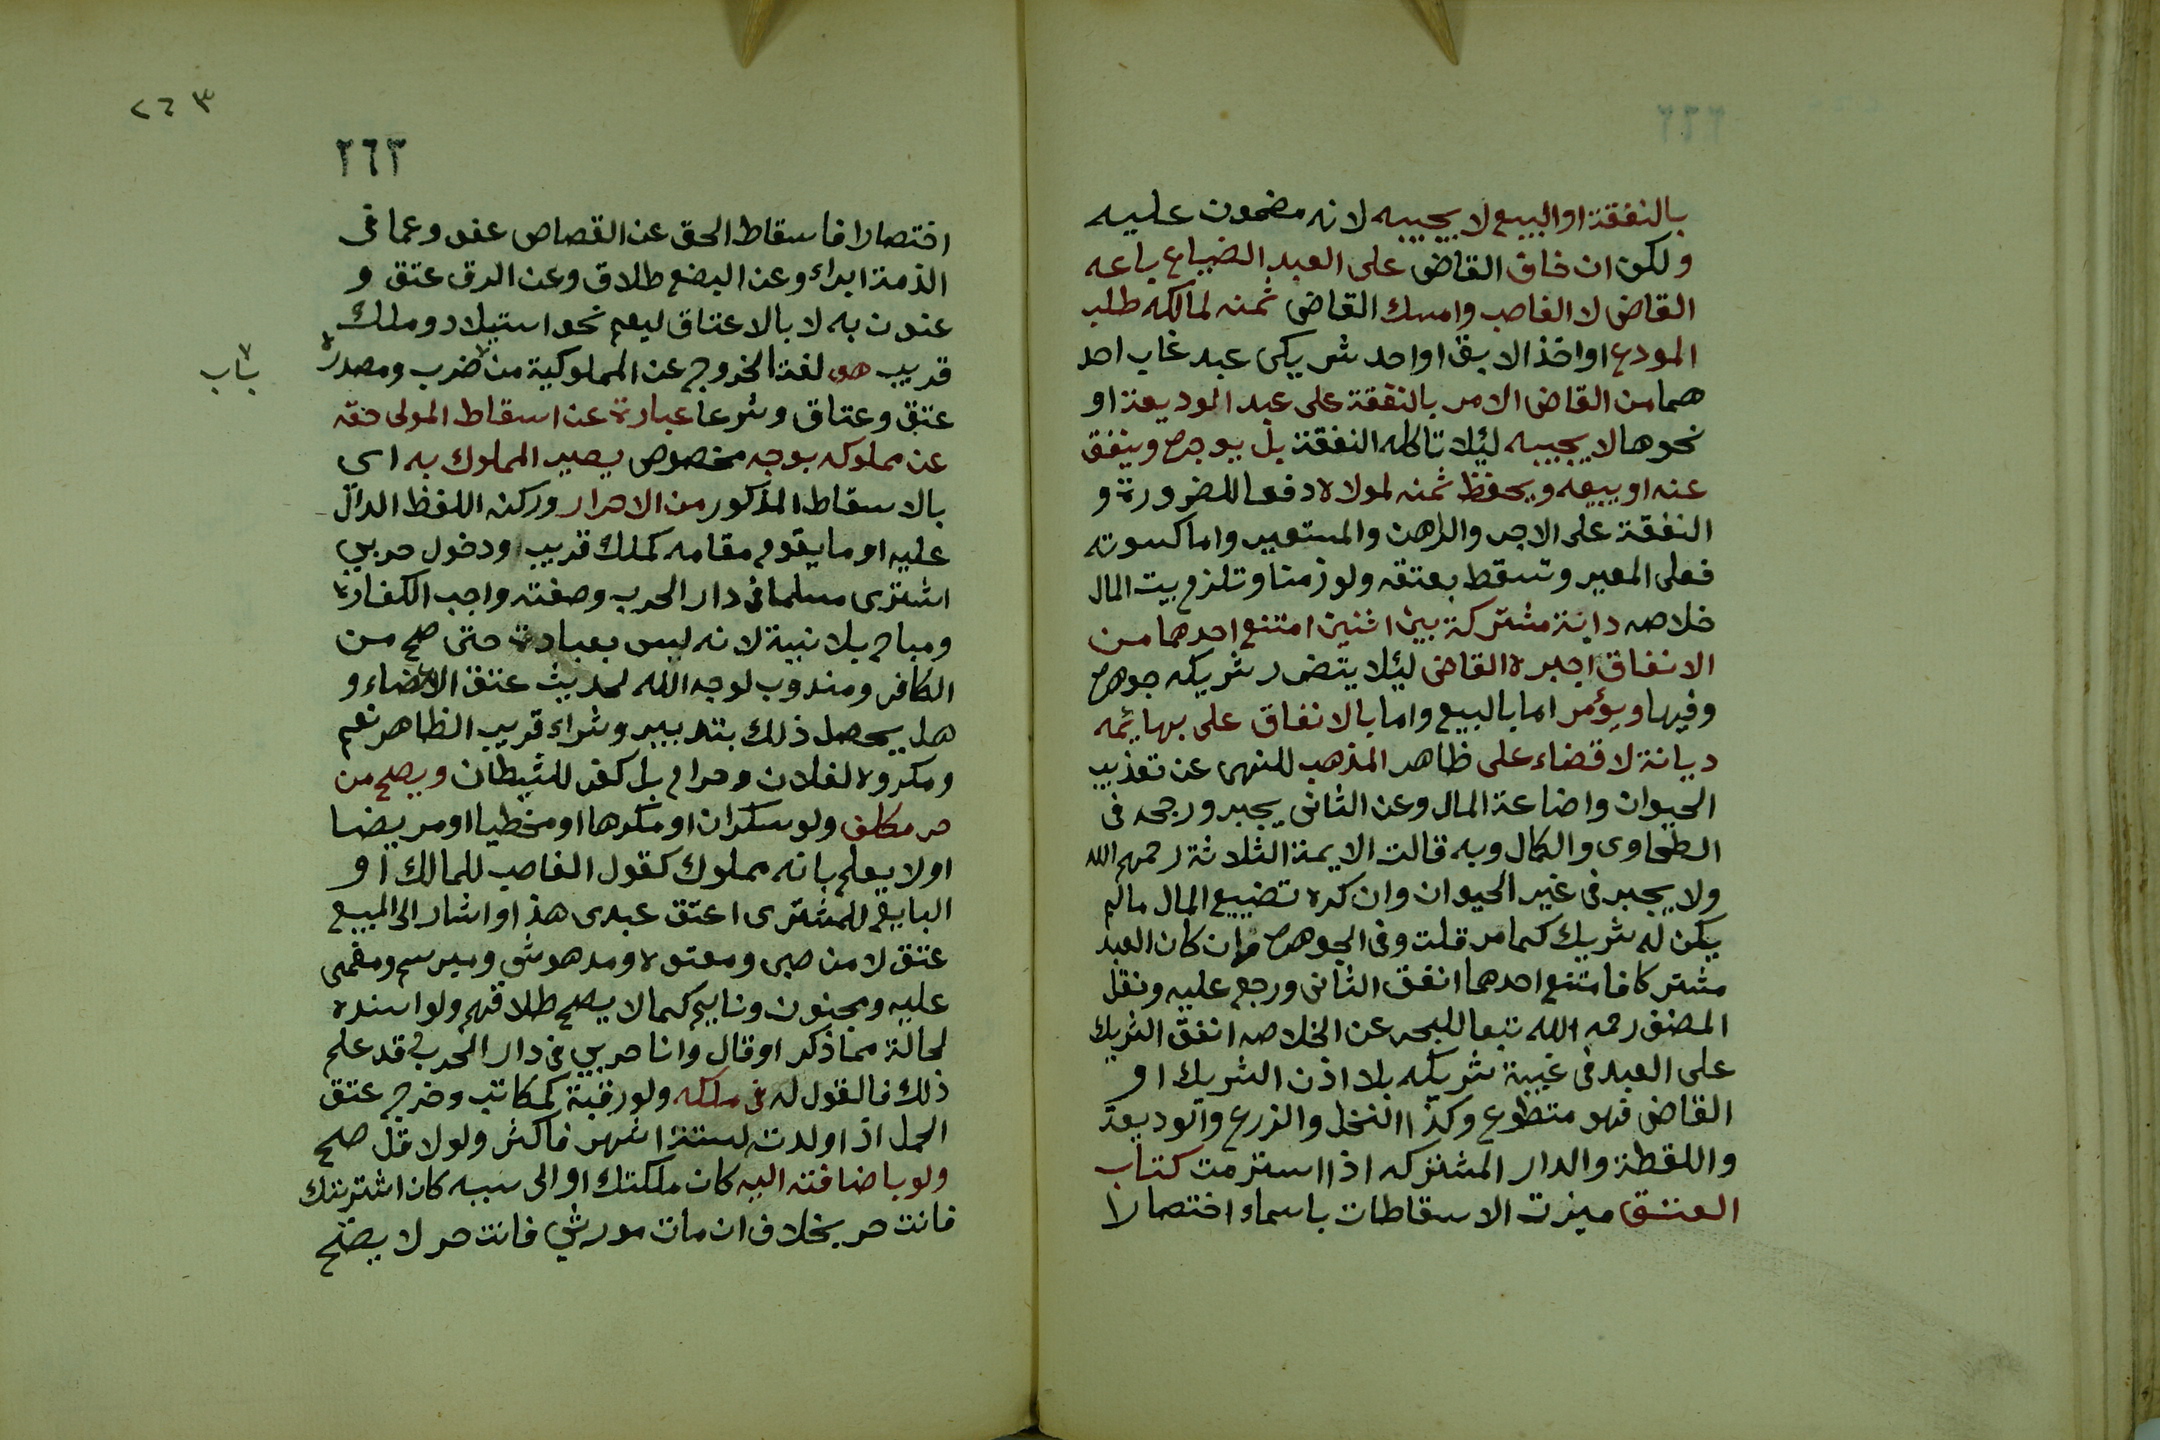 بالنفقة او البيع لا يجيبه لانه مضمون عليه
ولكن ان خاف القاضى على العبد الضياع باعه
القاضى لا الغاصب وامسك القاضى ثمنه لمالكه طلب
المودع او اخذ الابق او احد شريكى عبد غاب احد
هما من القاضى الامر بالنفقة على عبد الوديعة او
نحوها لا يجيبه ليئلا تاكله النفقة بل يوجره وينفق
عنه او يبيعه ويحفظ ثمنه لمولاه دفعا للضرورة و
النفقة على الاجر والراهن والمستعير واما كسوته
فعلى المعير وتسقط بعتقه ولو زمنا وتلزم بيت المال
خلاصه دابة مشتركة بين اثنين امتنع احدهما من
الانفاق اجبره القاضى ليئلا يتضرر شريكه جوهره
وفيها ويؤمر اما بالبيع واما بالانفاق على بهايمه
ديانة لا قضاء على ظاهر المذهب للنهى عن تعذيب
الحيوان واضاعة المال وعن الثانى يجبر ورجحه فى
الطحاوى والكمال وبه قالت الايمة الثلاثة رحمهم الله
ولا يجبر فى غير الحيوان وان كره تضييع المال مالم
يكن له شريك كما مر قلت وفى الجوهره وان كان العبد
مشتركا فامتنع احدهما انفق الثانى ورجع عليه ونقل
المصنف رحمه الله تبعا للبحر عن الخلاصه انفق الشريك
على العبد فى غيبة شريكه بلا اذن الشريك او
القاضى فهو متطوع وكذا النخل والزرع والوديعة
واللقطة والدار المشتركه اذا استرمت كتاب
العتق ميزت الاسقاطات باسماء اختصارا
٢٦٣
٢٦٣
اختصارا فاسقاط الحق عن القصاص عفو وعما فى
الذمة ابراء وعن البضع طلاق وعن الرق عتق و
عنون به لا بالاعتاق ليعم نحو استيلاد وملك
قريب هو لغة الخروج عن المملوكية من ضرب ومصدره
باب
عتق وعتاق وشرعا عبارة عن اسقاط المولى حقه
عن مملوكه بوجه مخصوص يصير المملوك به اى
بالاسقاط المذكور من الاحرار وركنه اللفظ الدال
عليه او ما يقوم مقامه كملك قريب او دخول حربي
اشترى مسلما فى دار الحرب وصفته واجب الكفارة
ومباح بلا نية لانه ليس بعبادة حتى صح من
الكافر ومندوب لوجه الله لحديث عتق الاعضاء و
هل يحصل ذلك بتدبير وشراء قريب الظاهر نعم
ومكروه لفلان وحرام بل كفر للشيطان ويصح من
حر مكلف ولو سكران او مكرها او مخطيا او مريضا
او لا يعلم بانه مملوك كقول الغاصب للمالك او
البايع للمشترى اعتق عبدى هذا واشار الى المبيع
عتق لا من صبى ومعتوه ومدهوش ومبرسم ومغمى
عليه ومجنون ونايم كما لا يصح طلاقهم ولو اسنده
لحالة مما ذكر او قال وانا حربي فى دار الحرب وقد علم
ذلك فالقول له فى ملكه ولو رقبة كمكاتب وخرج عتق
الحمل اذا ولدت لستة اشهر فاكثر ولو لاقل صح
ولو باضافته اليه كان ملكتك او الى سببه كان اشتريتك
فانت حر بخلاف ان مات مورثي فانت حر لا يصح